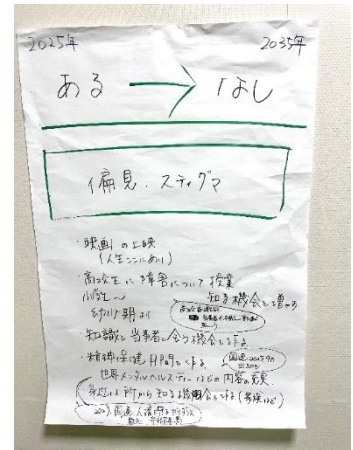 2025年 2035年
ある → なし
偏見・スティグマ
・映画の上映
(人生ここにあり)
・高校生に障害について授業
小学生〜 知る機会を増やす
幼少期より
・知識と当事者と会う機会を作る
・精神保健月間を作る
世界メンタルヘルスデーなどの内容の充実
身近な所から知る機会を作る(家族など)